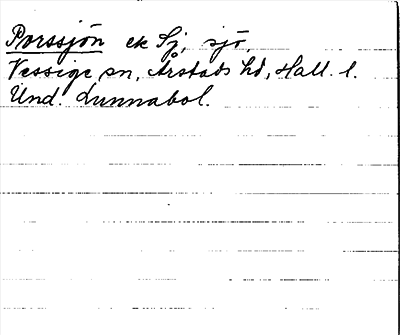 Porssjön ek Sj, sjö,
Vessige sn, Årstads hd, Hall. l.
Und. Lunnabol.